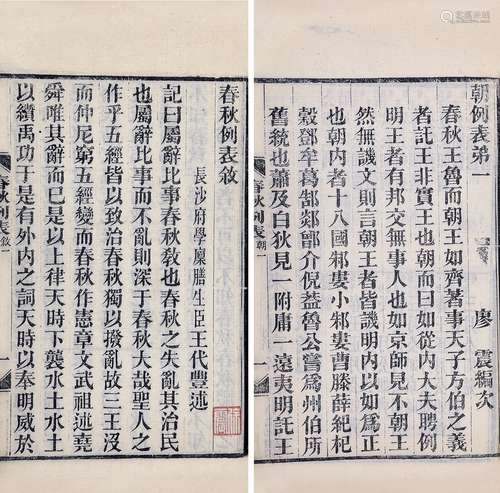 春秋例表敘
長沙府學廩膳生臣王代豐述
記曰屬辭比事春秋敎也春秋之失亂其治民
也屬辭比事而不亂則深于春秋大哉聖人之
作乎五經皆以致治春秋獨以撥亂故三王沒
而仲尼窮五經變而春秋作憲章文武祖述堯
舜唯其辭而已是以上律天時下襲水土水土
以纘禹功于是有外內之詞天時以奉明威於
春秋列表敘 一
朝例表第一
廖震編次
春秋王魯而王如齊著事天子方伯之義
者託王非實王也朝而曰如從內大夫聘例
明王者有邦交無事人也如京師見不朝王
然無譏文則言朝王者皆譏明內以如爲正
也朝內者十八國邾婁小邾婁曹滕薛紀杞
穀鄧牟葛郜郯鄫介倪益魯公嘗爲州伯所
舊統也蕭及白狄見一附庸一遠夷明託王
春秋列表朝 一